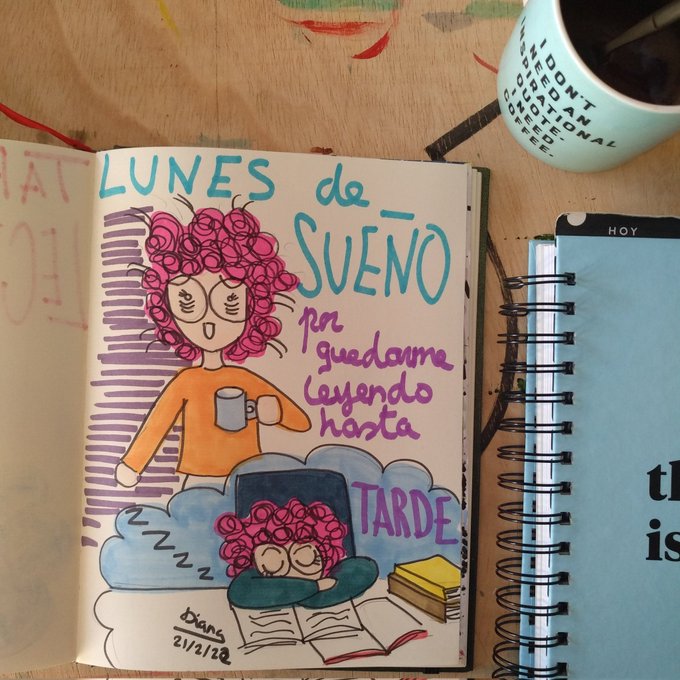 LUNES de
SUEÑO
por
quedarme
leyendo
hasta
TARDE
ZZZZZ
Diana
21/2/22
TAR
LEC
I DON'T
NEED AN
INSPIRATIONAL
QUOTE.
I NEED
COFFEE.
HOY
th
is